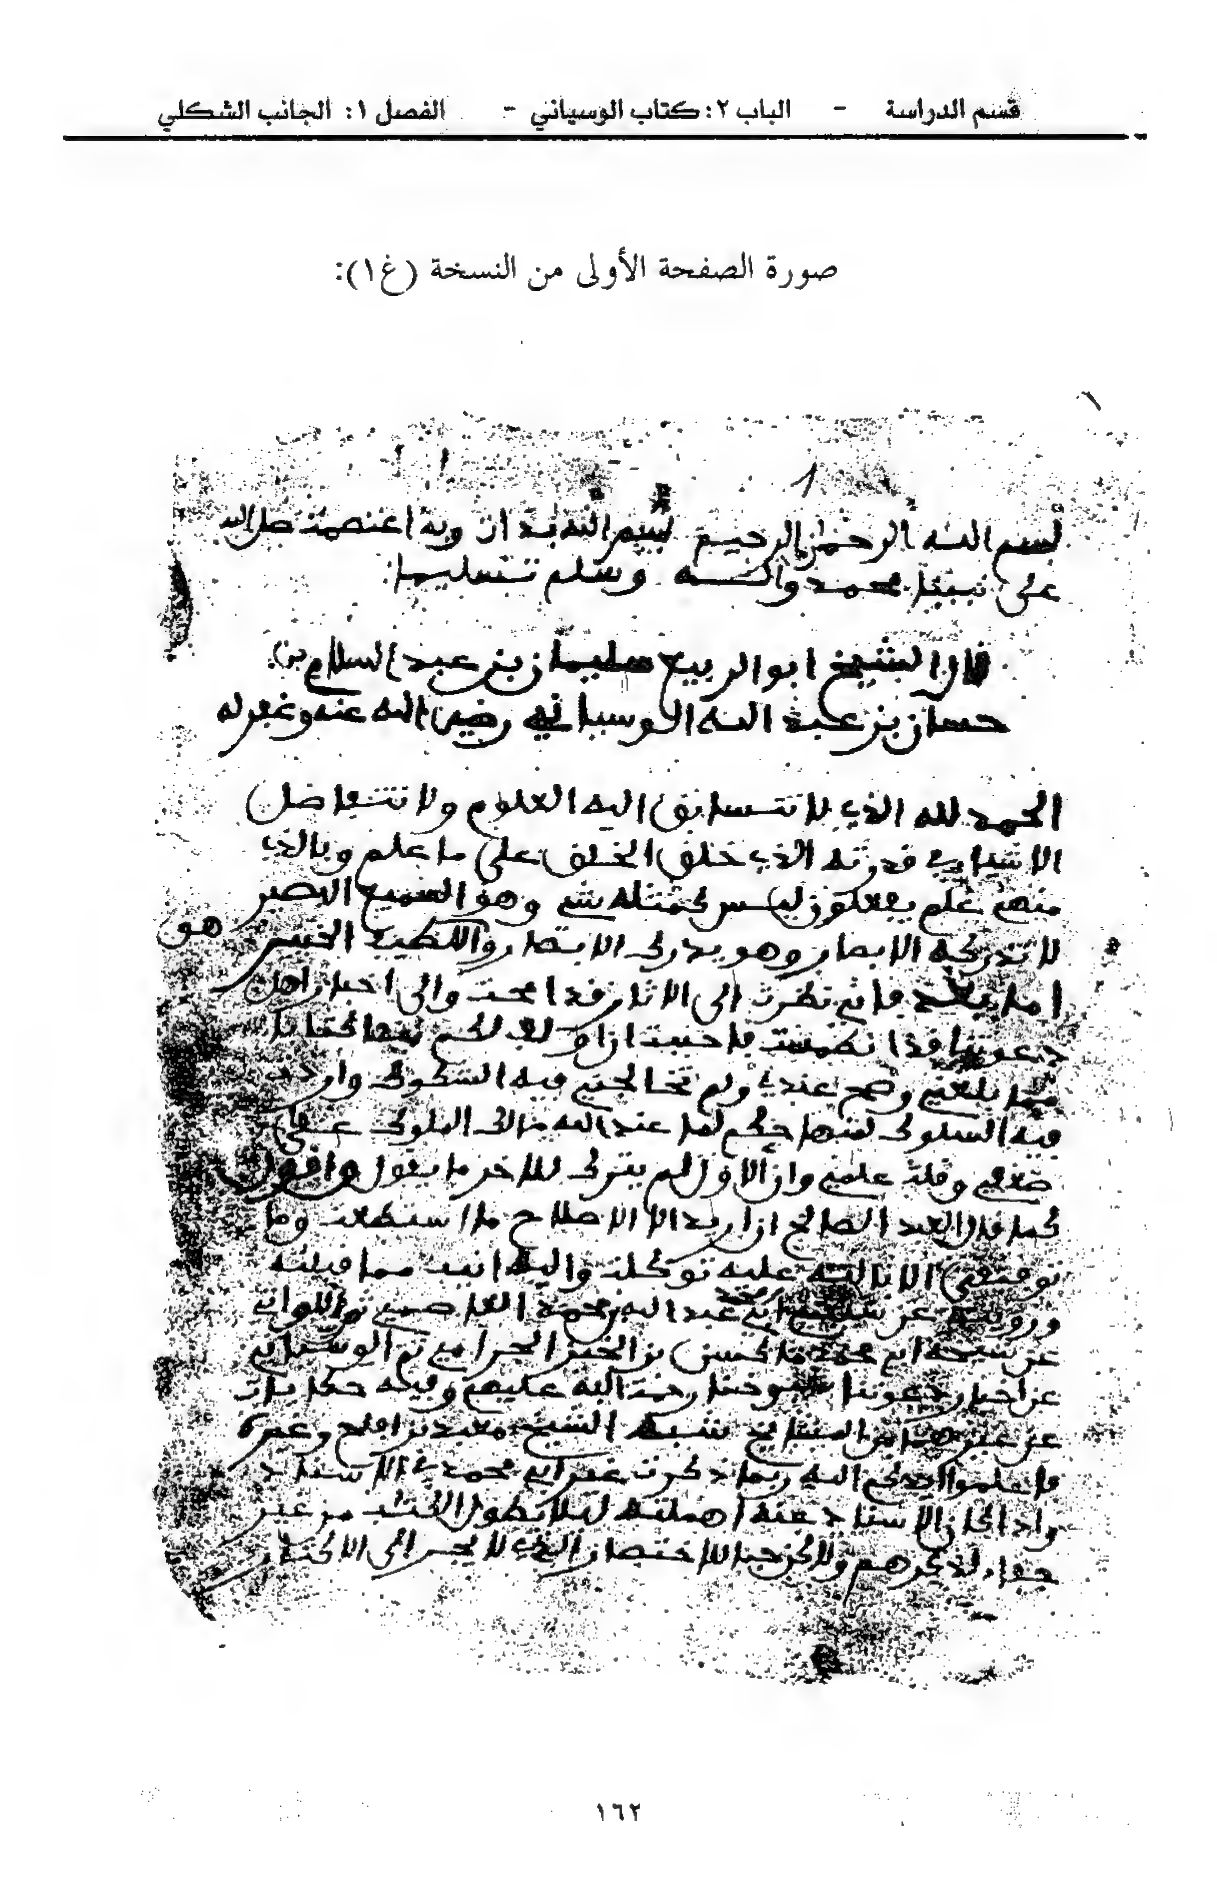 قسم الدراسة - الباب ٢: كتاب الوسياني - الفصل ١: الجانب الشكلي
صورة الصفحة الأولى من النسخة (غ١):
بسم الله الرحمن الرحيم بسم الله بدات وبه اعتصمت صل الله
على نبينا محمد واله وسلم تسليما
قال الشيخ ابو الربيع سليمان بن عبد السلام بن
حسان بن عبد الله الوسياني رضي الله عنه وغفر له
الحمد لله الذي لا تتسابق اليه العلوم ولا تتفاضل
الاشيا في قدرته الذي خلق الخلق على ما علم وبالذي
منهم علم يفعلون ليس كمثله شي وهو السميع البصير
لا تدركه الابصار وهو يدرك الابصار واللطيف الخبير هو
اما بعد فاني نظرت الى الاثار قد امحت والى اخبار اهل
دعوتنا قد انطمست فاحببت ان اولف لكم منها كتابا
مما بلغني وصح عندي ولم تخالجني فيه الشكوك واردت
فيه السلوك لمنهاجكم لما عند الله مالك الملوك على
ضعفي وقلة علمي وان الاول لم يترك للاخر ما يقول واقول
كما قال العبد الصالح ان اريد الا الاصلاح ما استطعت وما
توفيقي الا بالله عليه توكلت واليه انيب مما قبلته
ورويته عن ابي عبد الله محمد العاصمي
عن شيخه ابي محمد ماكسن بن الخير الجرامي ثم الوسياني
عن اخبار دعوتنا رحمة الله عليهم وفيه حكايات
عن غير هما من المشايخ الشيخ معبد بن افلح وغيره
فاعلموا ربما ذكرت غير ابي محمد الاسناد
واذا كان الاسناد عنه اهملته ليلا تطول الكتب من غير
جفاء لذكرهم للاختصار الذي لا يجر الى الاكثار
١٦٢